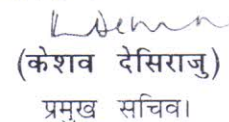 (केशव देसिराजु)
प्रमुख सचिव।